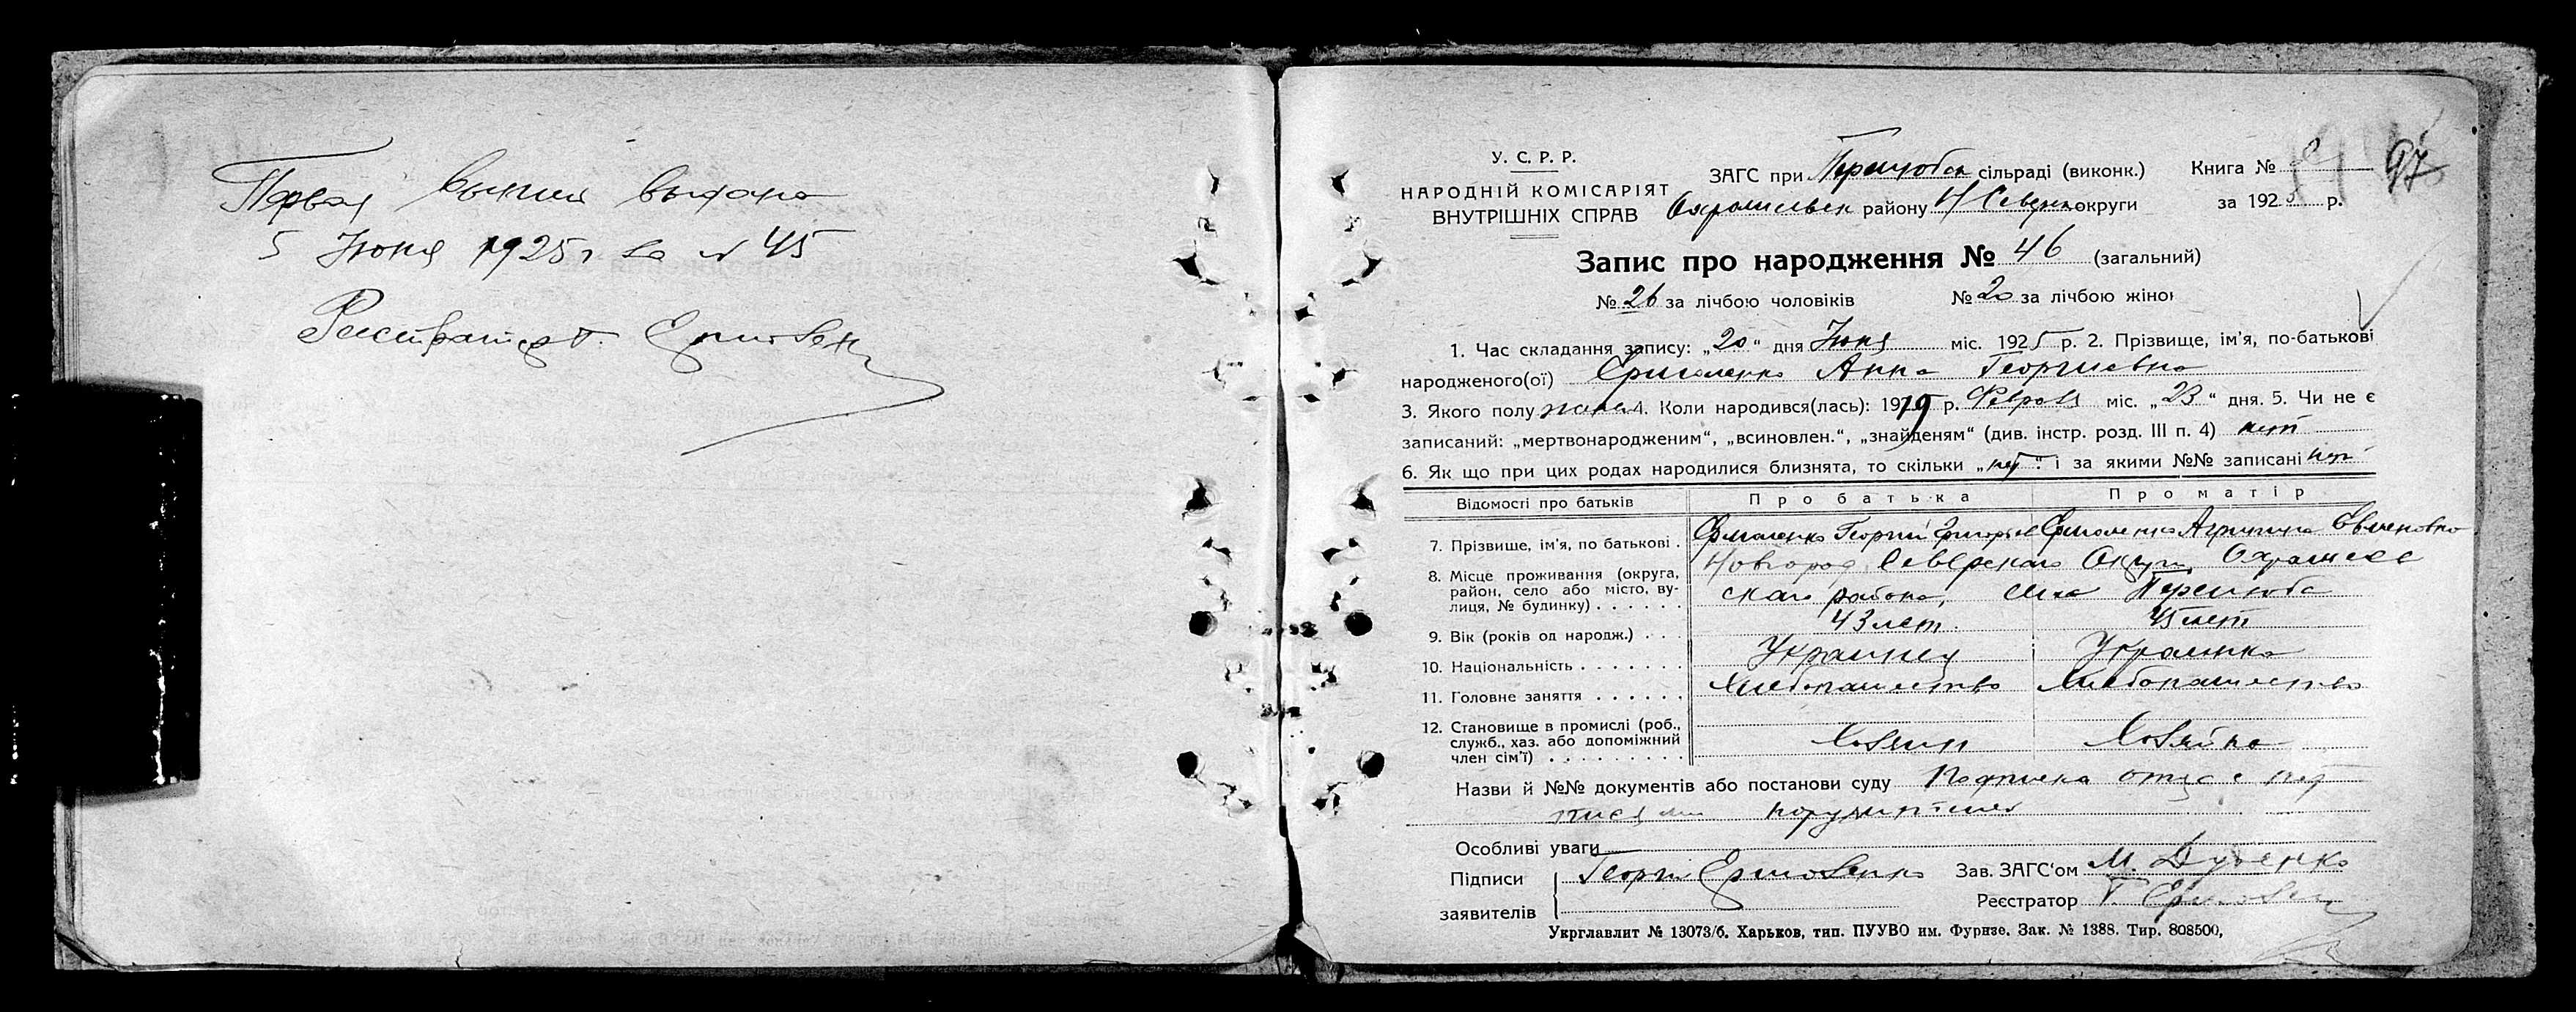 Первая выпись выдана
5 Июня 1925 г за № 45
Регистратор
У. С. Р. Р.
НАРОДНІЙ КОМІСАРІЯТ
ВНУТРІШНІХ СПРАВ
ЗАГС при сільраді (виконк.)
району Н Северск округи
Книга №
97
за 1925 р.
Запис про народження № 46 (загальний)
№ 26 за лічбою чоловіків № 20 за лічбою жінок
1. Час складання запису: „20“ дня Июня міс. 1925 р. 2. Прізвище, ім'я, по-батькові
народженого(ої) Ермоленко Анна Георгиевна
3. Якого полу 4. Коли народився(лась): 1919 р. міс. „23“ дня. 5. Чи не є
записаний: „мертвонародженим“, „всиновлен.“, „знайденям“ (див. інстр. розд. III п. 4) нет
6. Як що при цих родах народилися близнята, то скільки „нет“ і за якими №№ записані нет
Відомості про батьків Про батька Про матір
7. Прізвище, ім'я, по батькові . Ермоленко Георгий Григорьев Ермоленко Агрипина
8. Місце проживання (округа, район, село або місто, вулиця, № будинку) . . . . . . Новгород Северского Округи
ского района, села Перелюба
9. Вік (років од народж.) . . . 43 лет. 45 лет
10. Національність . . . . . . . Украинец Украинка
11. Головне заняття . . . . . . Хлебопашество Хлебопашество
12. Становище в промислі (роб., служб., хаз. або допоміжний член сім'ї) . . . . . . . . . Хозяин Хозяйка
Назви й №№ документів або постанови суду Подписка отца с
Особливі уваги
Підписи
заявителів
Георги Ермоленко
Зав. ЗАГС'ом М.
Реєстратор
Укрглавлит № 13073/6. Харьков, тип. ПУУВО им. Фрунзе. Зак. № 1388. Тир. 808500,